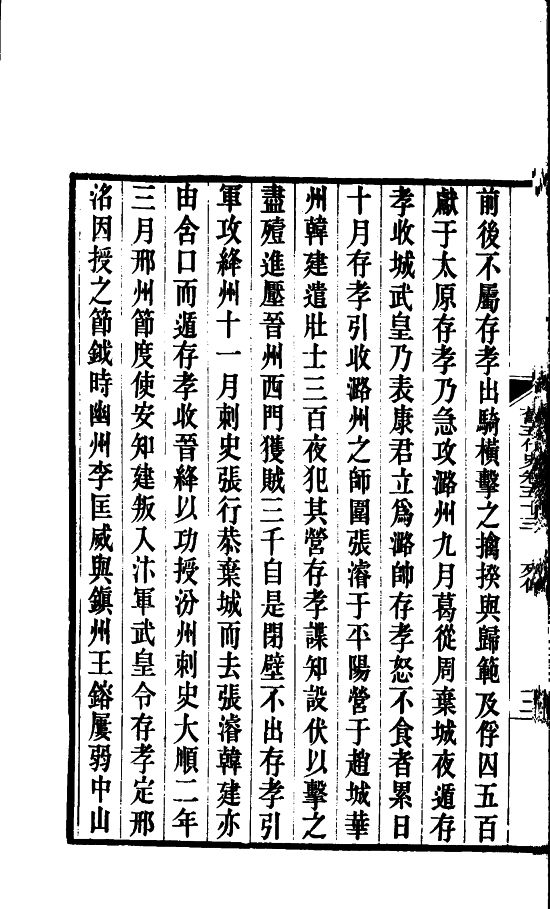 前後不屬存孝出騎橫擊之擒揆與歸範及俘囚五百
獻于太原存孝乃急攻潞州九月葛從周棄城夜遁存
孝收城武皇乃表康君立爲潞帥存孝怒不食者累日
十月存孝引收潞州之師圍張濬于平陽營于趙城華
州韓建遣壯士三百夜犯其營存孝諜知設伏以擊之
盡殪進壓晉州西門獲賊三千自是閉壁不出存孝引
軍攻絳州十一月刺史張行恭棄城而去張濬韓建亦
由含口而遁存孝收晉絳以功授汾州刺史大順二年
三月邢州節度使安知建叛入汴軍武皇令存孝定邢
洺因授之節鉞時幽州李匡威與鎮州王鎔屢弱中山